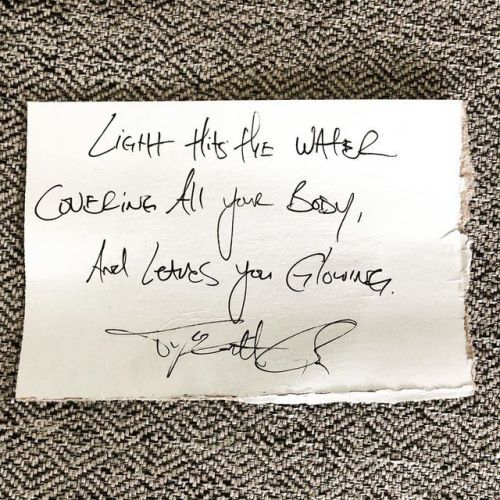 Light Hits the WATER
COVERING All your BODY,
And LEAVES you GLOWING.